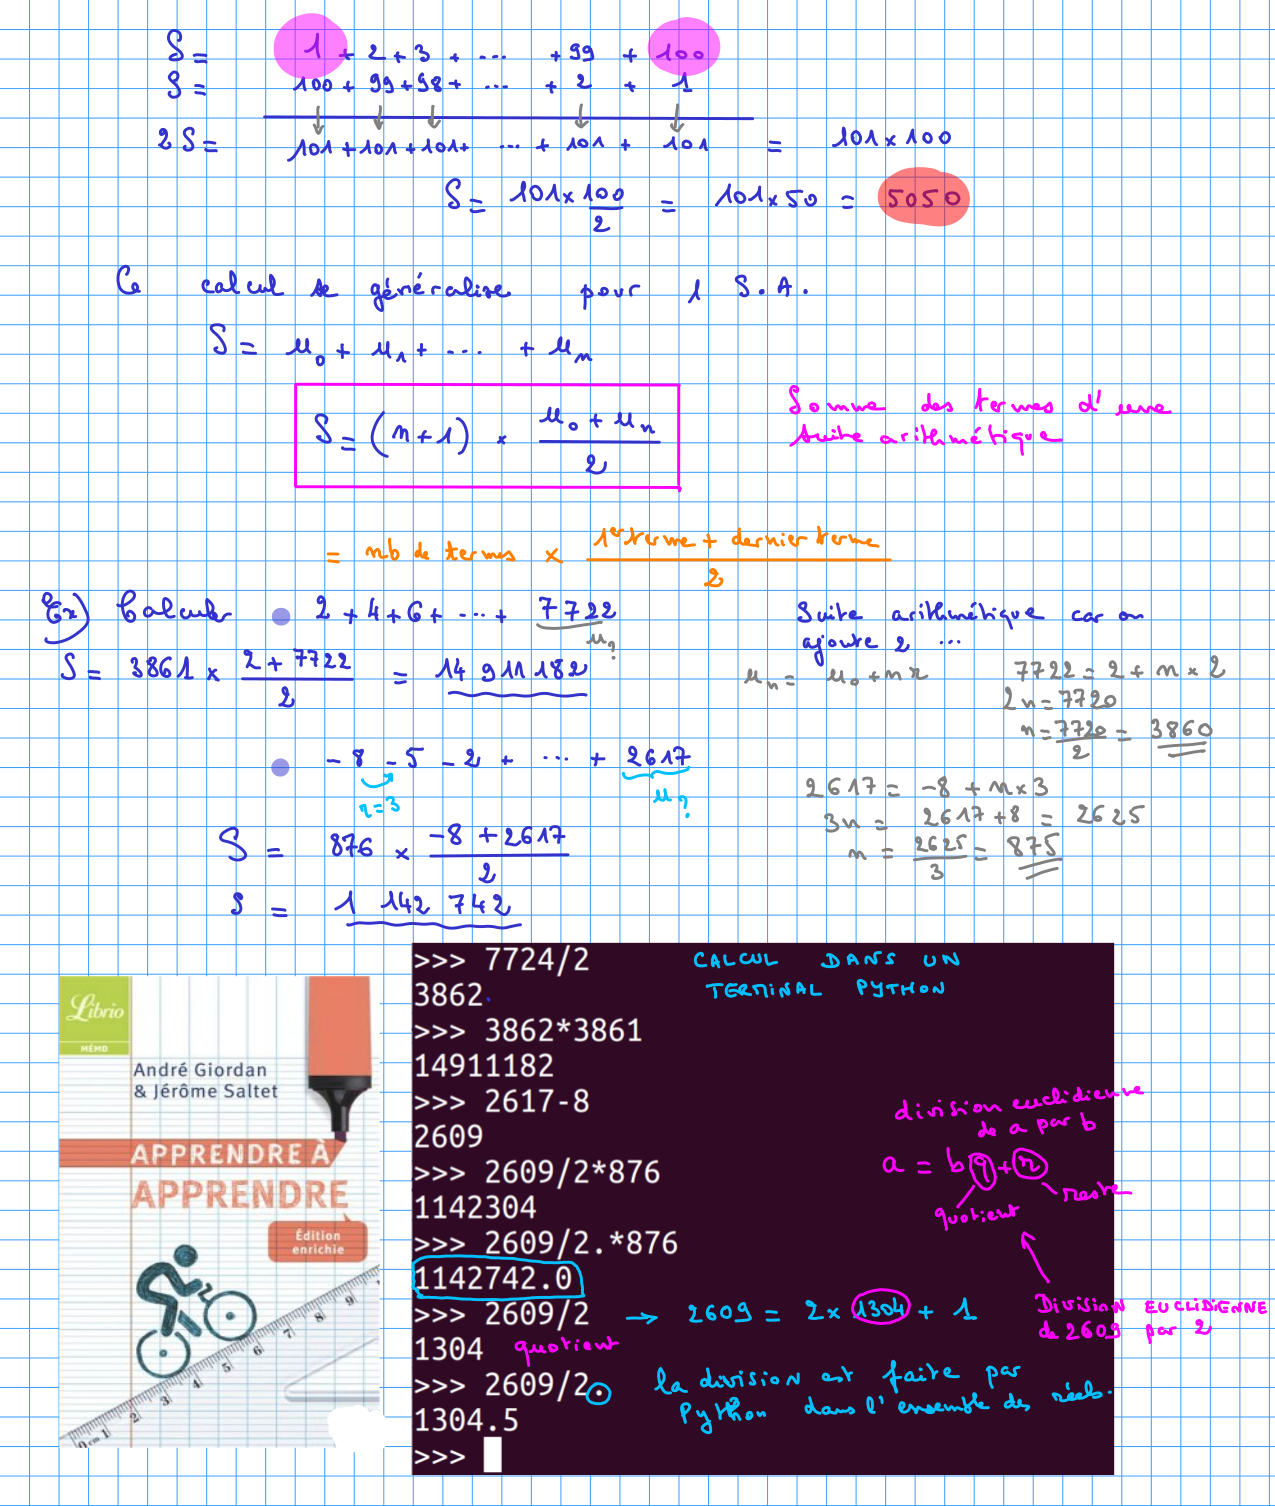 S = 1 + 2 + 3 + ... + 99 + 100
S = 100 + 99 + 98 + ... + 2 + 1
2S = 101 + 101 + 101 + ... + 101 + 101 = 101 x 100
S = 101 x 100 / 2 = 101 x 50 = 5050
Ce calcul se généralise pour 1 S.A.
S = u₀ + u₁ + ... + uₙ
S = (n+1) x (u₀ + uₙ) / 2
Somme des termes d'une
suite arithmétique
= nb de termes x (1er terme + dernier terme) / 2
Ex) Calculer
2 + 4 + 6 + ... + 7722
u?
Suite arithmétique car on
ajoute 2 ...
S = 3861 x (2 + 7722) / 2 = 14 911 182
uₙ = u₀ + nr
7722 = 2 + n x 2
2n = 7720
n = 7720 / 2 = 3860
-8 -5 -2 + ... + 2617
r=3
u?
2617 = -8 + n x 3
3n = 2617 + 8 = 2625
n = 2625 / 3 = 875
S = 876 x (-8 + 2617) / 2
S = 1 142 742
Librio
MÉMO
André Giordan
& Jérôme Saltet
APPRENDRE À
APPRENDRE
Édition
enrichie
0 cm 1 2 3 4 5 6 7 8 9
>>> 7724/2
CALCUL DANS UN
TERMINAL PYTHON
3862
>>> 3862*3861
14911182
>>> 2617-8
2609
>>> 2609/2*876
1142304
>>> 2609/2.*876
1142742.0
>>> 2609/2
→ 2609 = 2 x 1304 + 1
1304
quotient
>>> 2609/2.
la division est faite par
Python dans l'ensemble des réels.
1304.5
>>>
division euclidienne
de a par b
a = bq + r
quotient
reste
Division EUCLIDIENNE
de 2609 par 2